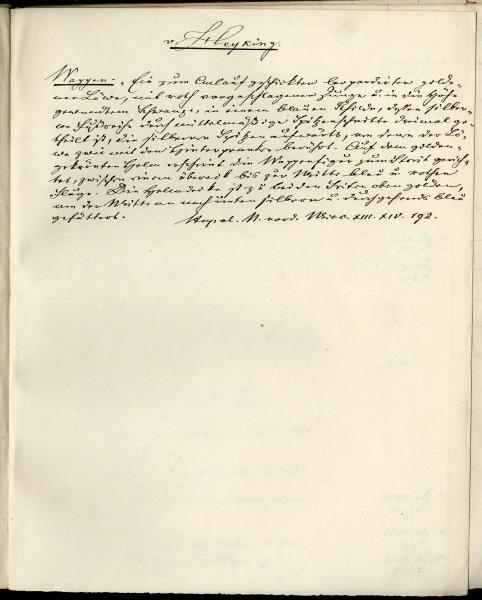 v. Heyking.
Wappen: Ein zum Anlauf geschickter leopardirter golde-
ner Löwe, mit roth vorgeschlagener Zunge u. in die Höhe
gewundtem Schwanze, in einem blauen Schilde, dessen silber-
ne Fußreihe durch mittelmäßige Spitzenschnitte dreimal ge-
theilt ist, die silbernen Spitzen aufwärts, an denen der Lö-
we zwei mit den Hinterpranken berührt. Auf dem golden-
gekrönten Helm erscheint die Wappenfigur zum Streit gerich-
tet, zwischen einem übereck bis zur Mitte blau u. rothen
Fluge. Die Helmdecke ist zu beiden Seiten oben golden,
von der Mitte an nach unten silbern u. durchgehends blau
gefüttert. Hupel. N. nord. Misc. XIII. XIV. 192.